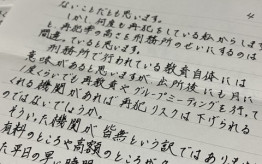 ないことだとも思います。
しかし何度も再犯をしている私からします
と再犯率の高さを刑務所のせいにするのは
間違っていると思います。
刑務所で行われている教養自体には
意味があると思いますが、出所後にも月に
1度くらいでも再教養やグループミーティングを行って
くれる機関があれば再犯リスクは下げられる
のではないでしょうか。
そういった機関が皆無という訳ではありま
有料のところや高額のところが
た平日の早い時間